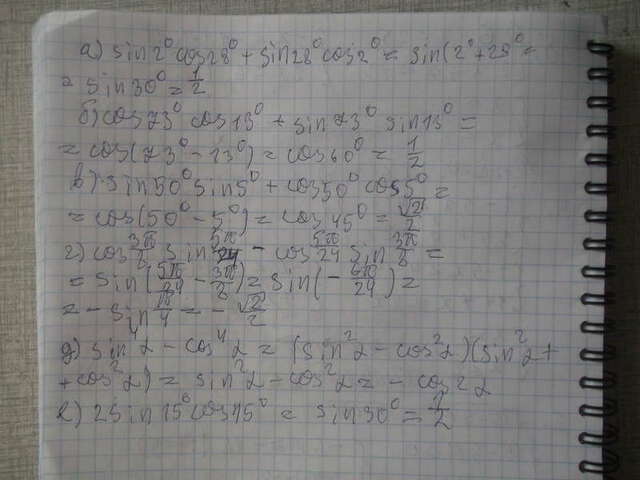 а) sin2° cos28° + sin28° cos2° = sin(2° + 28° =
= sin30° = 1/2
б) cos73° cos13° + sin73° sin13° =
= cos(73° - 13°) = cos60° = 1/2
в) sin50° sin5° + cos50° cos5° =
= cos(50° - 5°) = cos45° = √2/2
г) cos 3π/8 sin 5π/24 - cos 5π/24 sin 3π/8 =
= sin(5π/24 - 3π/8) = sin(- 6π/24) =
= - sin π/4 = - √2/2
д) sin⁴α - cos⁴α = (sin²α - cos²α)(sin²α +
+ cos²α) = sin²α - cos²α = - cos2α
е) 2sin15° cos15° = sin30° = 1/2